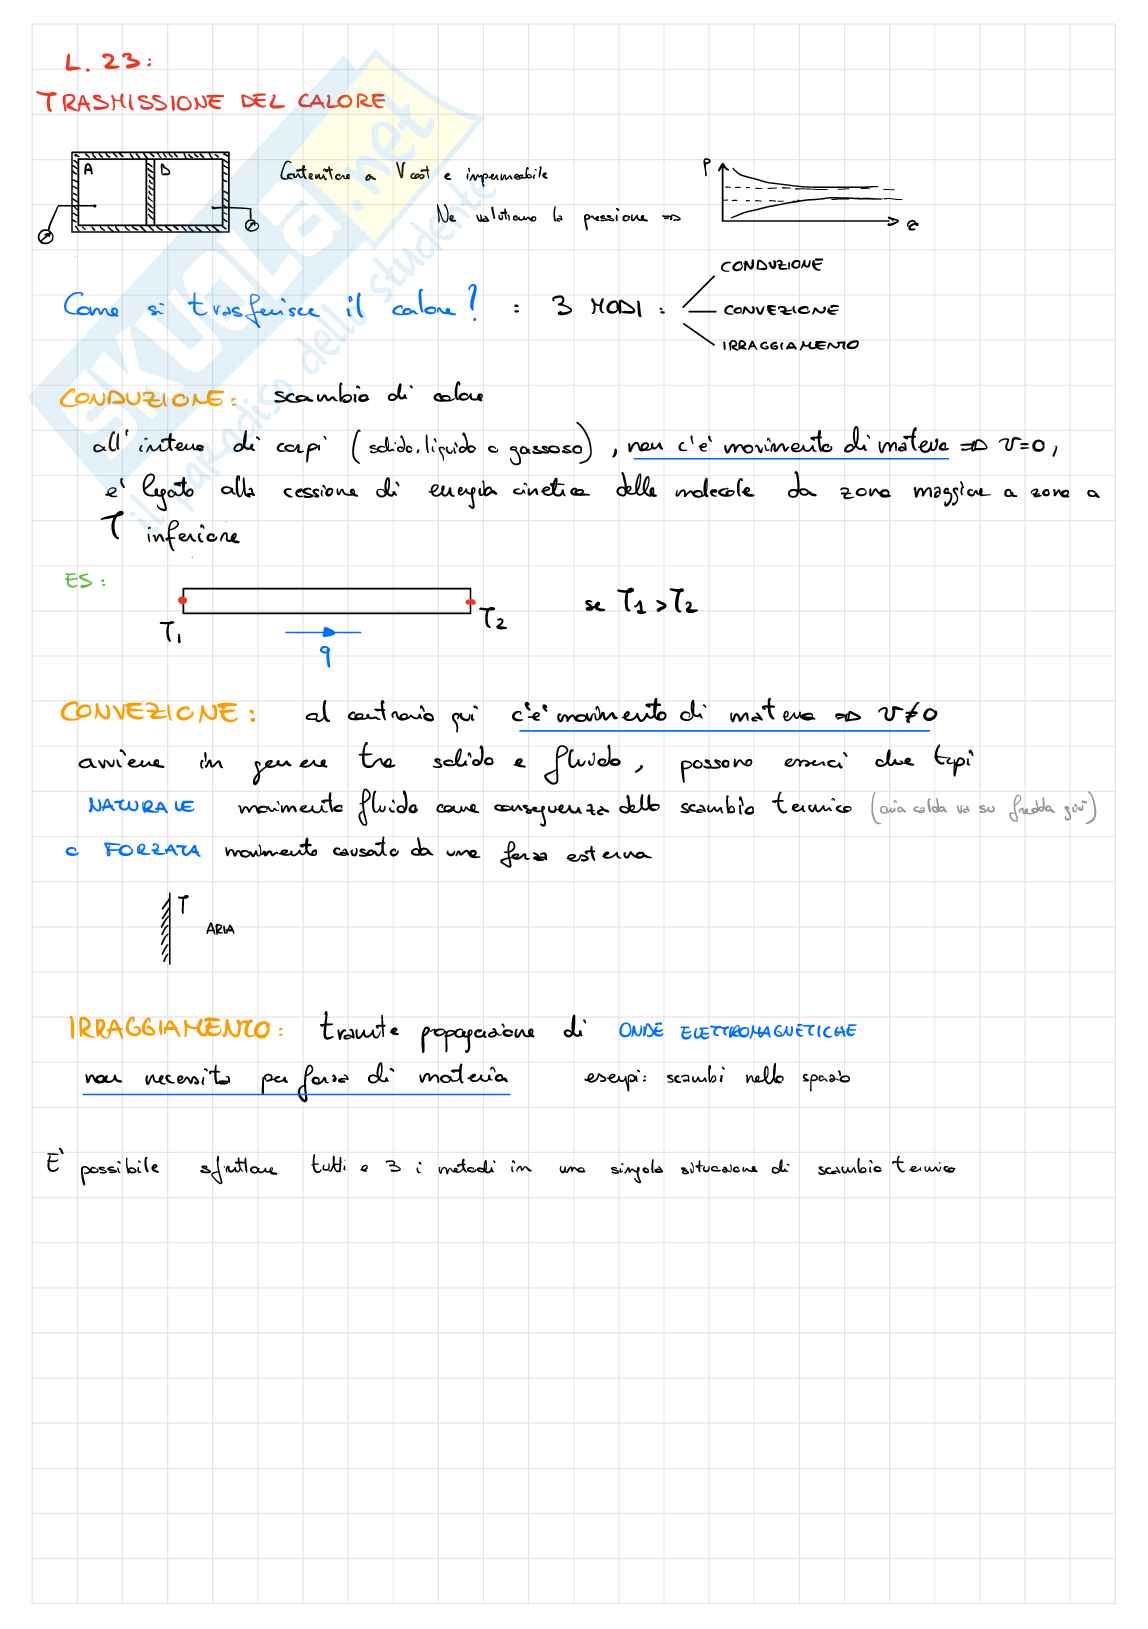 L. 23:
TRASMISSIONE DEL CALORE
A B
Contenitore a V cost e impermeabile
Ne valutiamo la pressione =>
P
z
Come si trasferisce il calore? : 3 MODI :
CONDUZIONE
CONVEZIONE
IRRAGGIAMENTO
CONDUZIONE: scambio di calore
all'interno di corpi (solido, liquido o gassoso), non c'e' movimento di materia => v=0,
e' legato alla cessione di energia cinetica delle molecole da zona maggiore a zona a
T inferiore
ES:
T1 T2 se T1 > T2
q
CONVEZIONE: al contrario qui c'e' movimento di materia => v≠0
avviene in genere tra solido e fluido, possono esserci due tipi
NATURALE movimento fluido come conseguenza dello scambio termico (aria calda va su fredda giù)
o FORZATA movimento causato da una forza esterna
T
ARIA
IRRAGGIAMENTO: tramite propagazione di ONDE ELETTROMAGNETICHE
non necessita per forza di materia esempi: scambi nello spazio
E' possibile sfruttare tutti e 3 i metodi in una singola situazione di scambio termico
SKUOLA.net
il paradiso dello studente